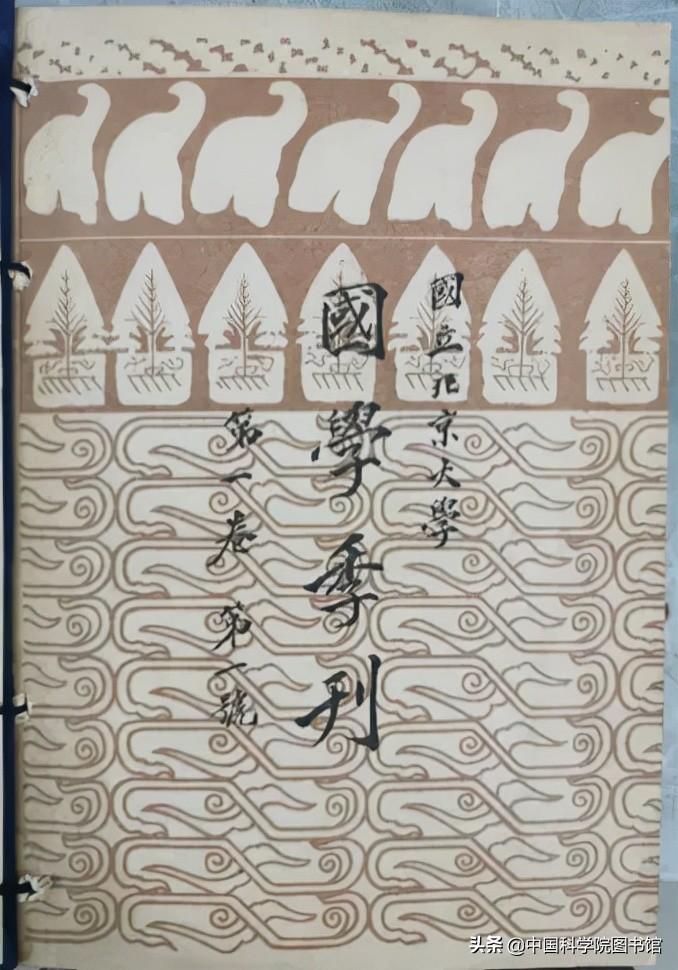 國立北京大學
國學季刊
第一卷 第一號
头条 @中国科学院图书馆